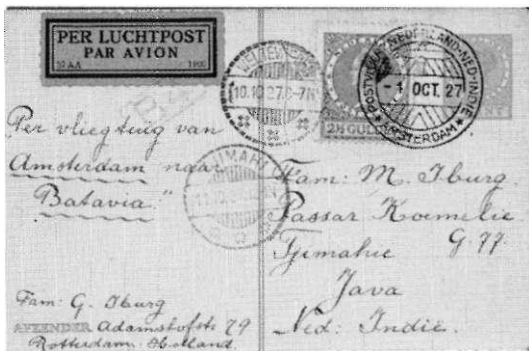 PER LUCHTPOST
PAR AVION
10.10.27
POSTVLUCHT NEDERLAND-NED-INDIE
-1 OCT. 27
AMSTERDAM
2½ GULD
Per vliegtuig van
Amsterdam naar
Batavia."
Fam: M. Iburg.
Passar Koemelie
G. 77.
Tjimahie
Java
Ned: Indië.
Fam: G. Iburg
AFZENDER Adamshofstr 79
Rotterdam: Holland.